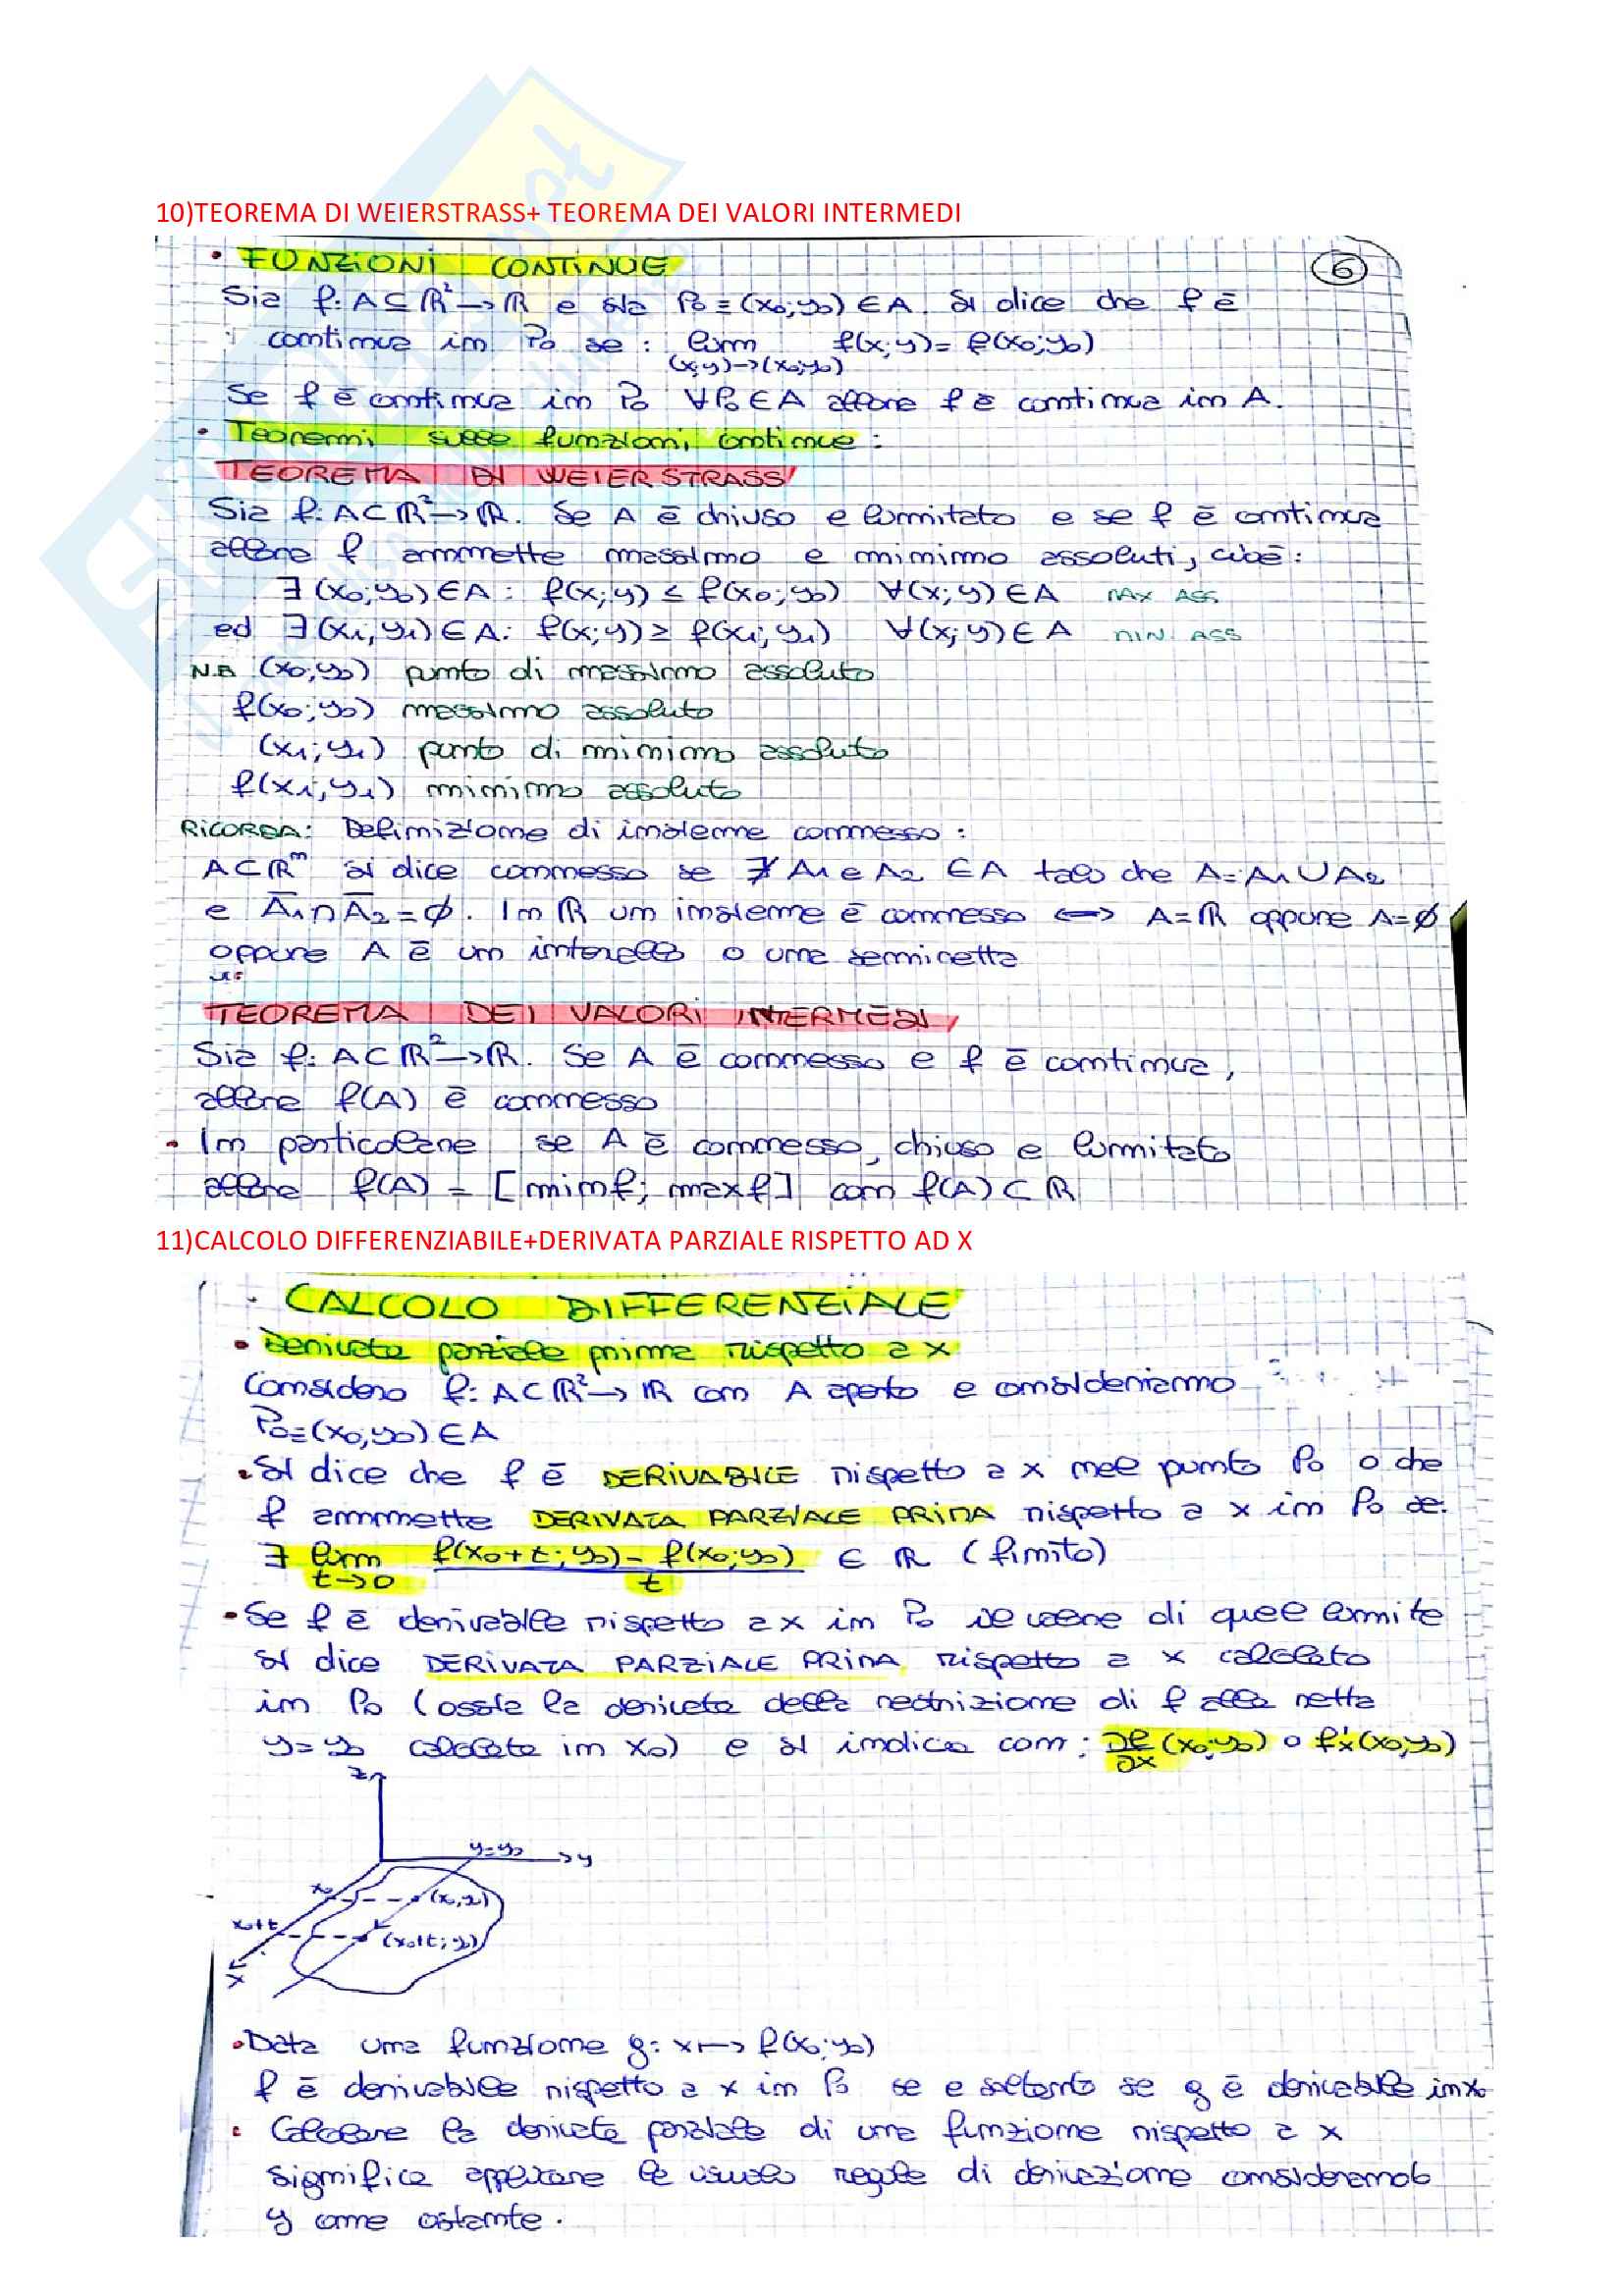 10)TEOREMA DI WEIERSTRASS+ TEOREMA DEI VALORI INTERMEDI
• FUNZIONI CONTINUE
6
Sia f: A⊆ℝ²→ℝ e sia P₀≡(x₀;y₀)∈A. Si dice che f è
continua in P₀ se: lim f(x;y)= f(x₀;y₀)
(x;y)→(x₀;y₀)
Se f è continua in P₀ ∀P₀∈A allora f è continua in A.
• Teoremi sulle funzioni continue:
TEOREMA DI WEIERSTRASS
Sia f: A⊂ℝ²→ℝ. Se A è chiuso e limitato e se f è continua
allora f ammette massimo e minimo assoluti, cioè:
∃(x₀;y₀)∈A: f(x;y)≤ f(x₀;y₀) ∀(x;y)∈A MAX ASS
ed ∃(x₁,y₁)∈A: f(x;y)≥ f(x₁;y₁) ∀(x;y)∈A MIN. ASS
N.B (x₀;y₀) punto di massimo assoluto
f(x₀;y₀) massimo assoluto
(x₁;y₁) punto di minimo assoluto
f(x₁;y₁) minimo assoluto
RICORDA: Definizione di insieme connesso:
A⊂ℝⁿ si dice connesso se ∄ A₁ e A₂ ∈A tale che A=A₁∪A₂
e A̅₁∩A̅₂=∅. In ℝ un insieme è connesso ⟺ A=ℝ oppure A=∅
oppure A è un intervallo o una semiretta
TEOREMA DEI VALORI INTERMEDI
Sia f: A⊂ℝ²→ℝ. Se A è connesso e f è continua,
allora f(A) è connesso
• In particolare se A è connesso, chiuso e limitato
allora f(A) = [minf; maxf] con f(A)⊂ℝ
11)CALCOLO DIFFERENZIABILE+DERIVATA PARZIALE RISPETTO AD X
• CALCOLO DIFFERENZIALE
• Derivata parziale prima rispetto a x
Considero f: A⊂ℝ²→ℝ con A aperto e consideriamo
P₀≡(x₀;y₀)∈A
• Si dice che f è DERIVABILE rispetto a x nel punto P₀ o che
f ammette DERIVATA PARZIALE PRIMA rispetto a x in P₀ se:
∃ lim f(x₀+t;y₀)- f(x₀;y₀) ∈ ℝ (finito)
t→0 t
• Se f è derivabile rispetto a x in P₀ il valore di quel limite
si dice DERIVATA PARZIALE PRIMA rispetto a x calcolato
in P₀ (ossia la derivata della restrizione di f alla retta
y=y₀ calcolata in x₀) e si indica con: ∂f/∂x (x₀;y₀) o f'x(x₀;y₀)
z
y=y₀
y
x₀ (x₀,y₀)
x₀+t (x₀+t;y₀)
x
• Data una funzione g: x↦ f(x₀;y₀)
f è derivabile rispetto a x in P₀ se e soltanto se g è derivabile in x₀
• Calcolare la derivata parziale di una funzione rispetto a x
significa applicare le usuali regole di derivazione considerando
y come costante.